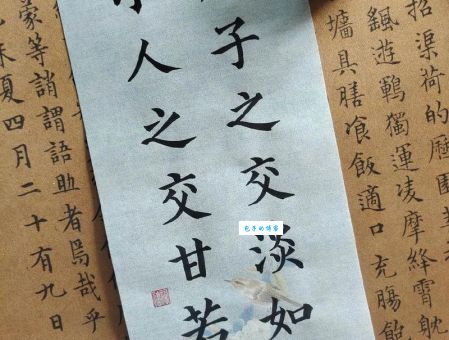 招渠荷的歷園
颻遊鵾獨運凌摩絳霄耽
墻具膳飡飯適口充腸飽
子之交淡如
人之交甘若
蒙等誚謂語助者焉哉乎
未夏四月二十有九日
包子的博客